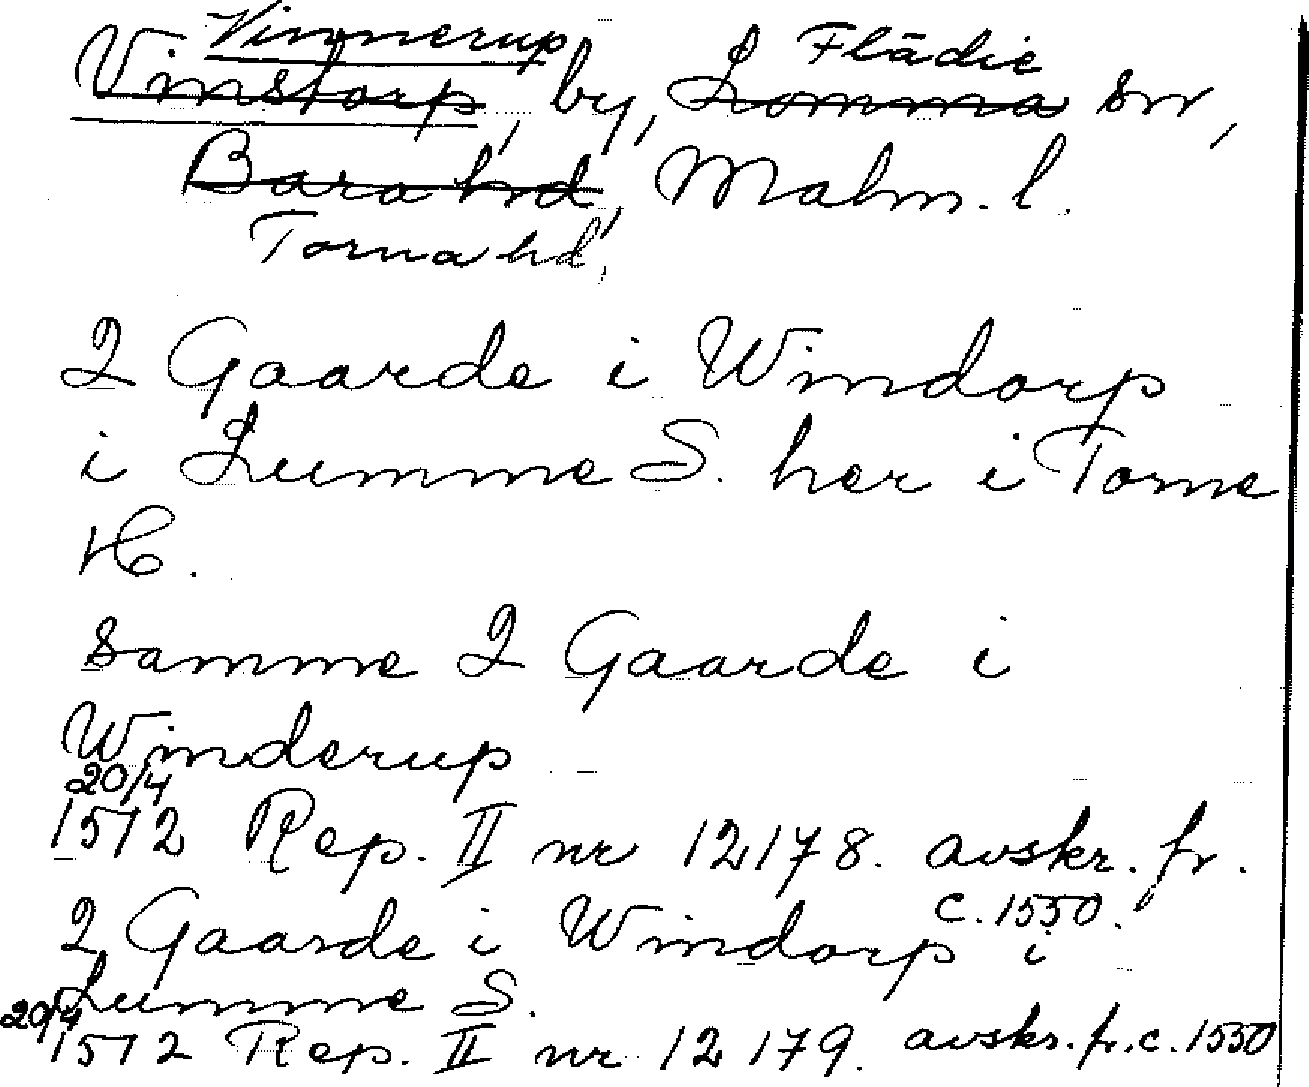 Vinnerup
Vinstorp, by, Lomma sn,
Flädie
Bara hd, Malm. l.
Torna hd,
2 Gaarde i Windorp
i Lumme S. her i Torne
H.
samme 2 Gaarde i
Winderup
20/4
1512 Rep. II nr 12178. avskr. fr.
c. 1550.
2 Gaarde i Windorp i
Lumme S.
20/4
1512 Rep. II nr 12179. avskr. fr. c. 1550